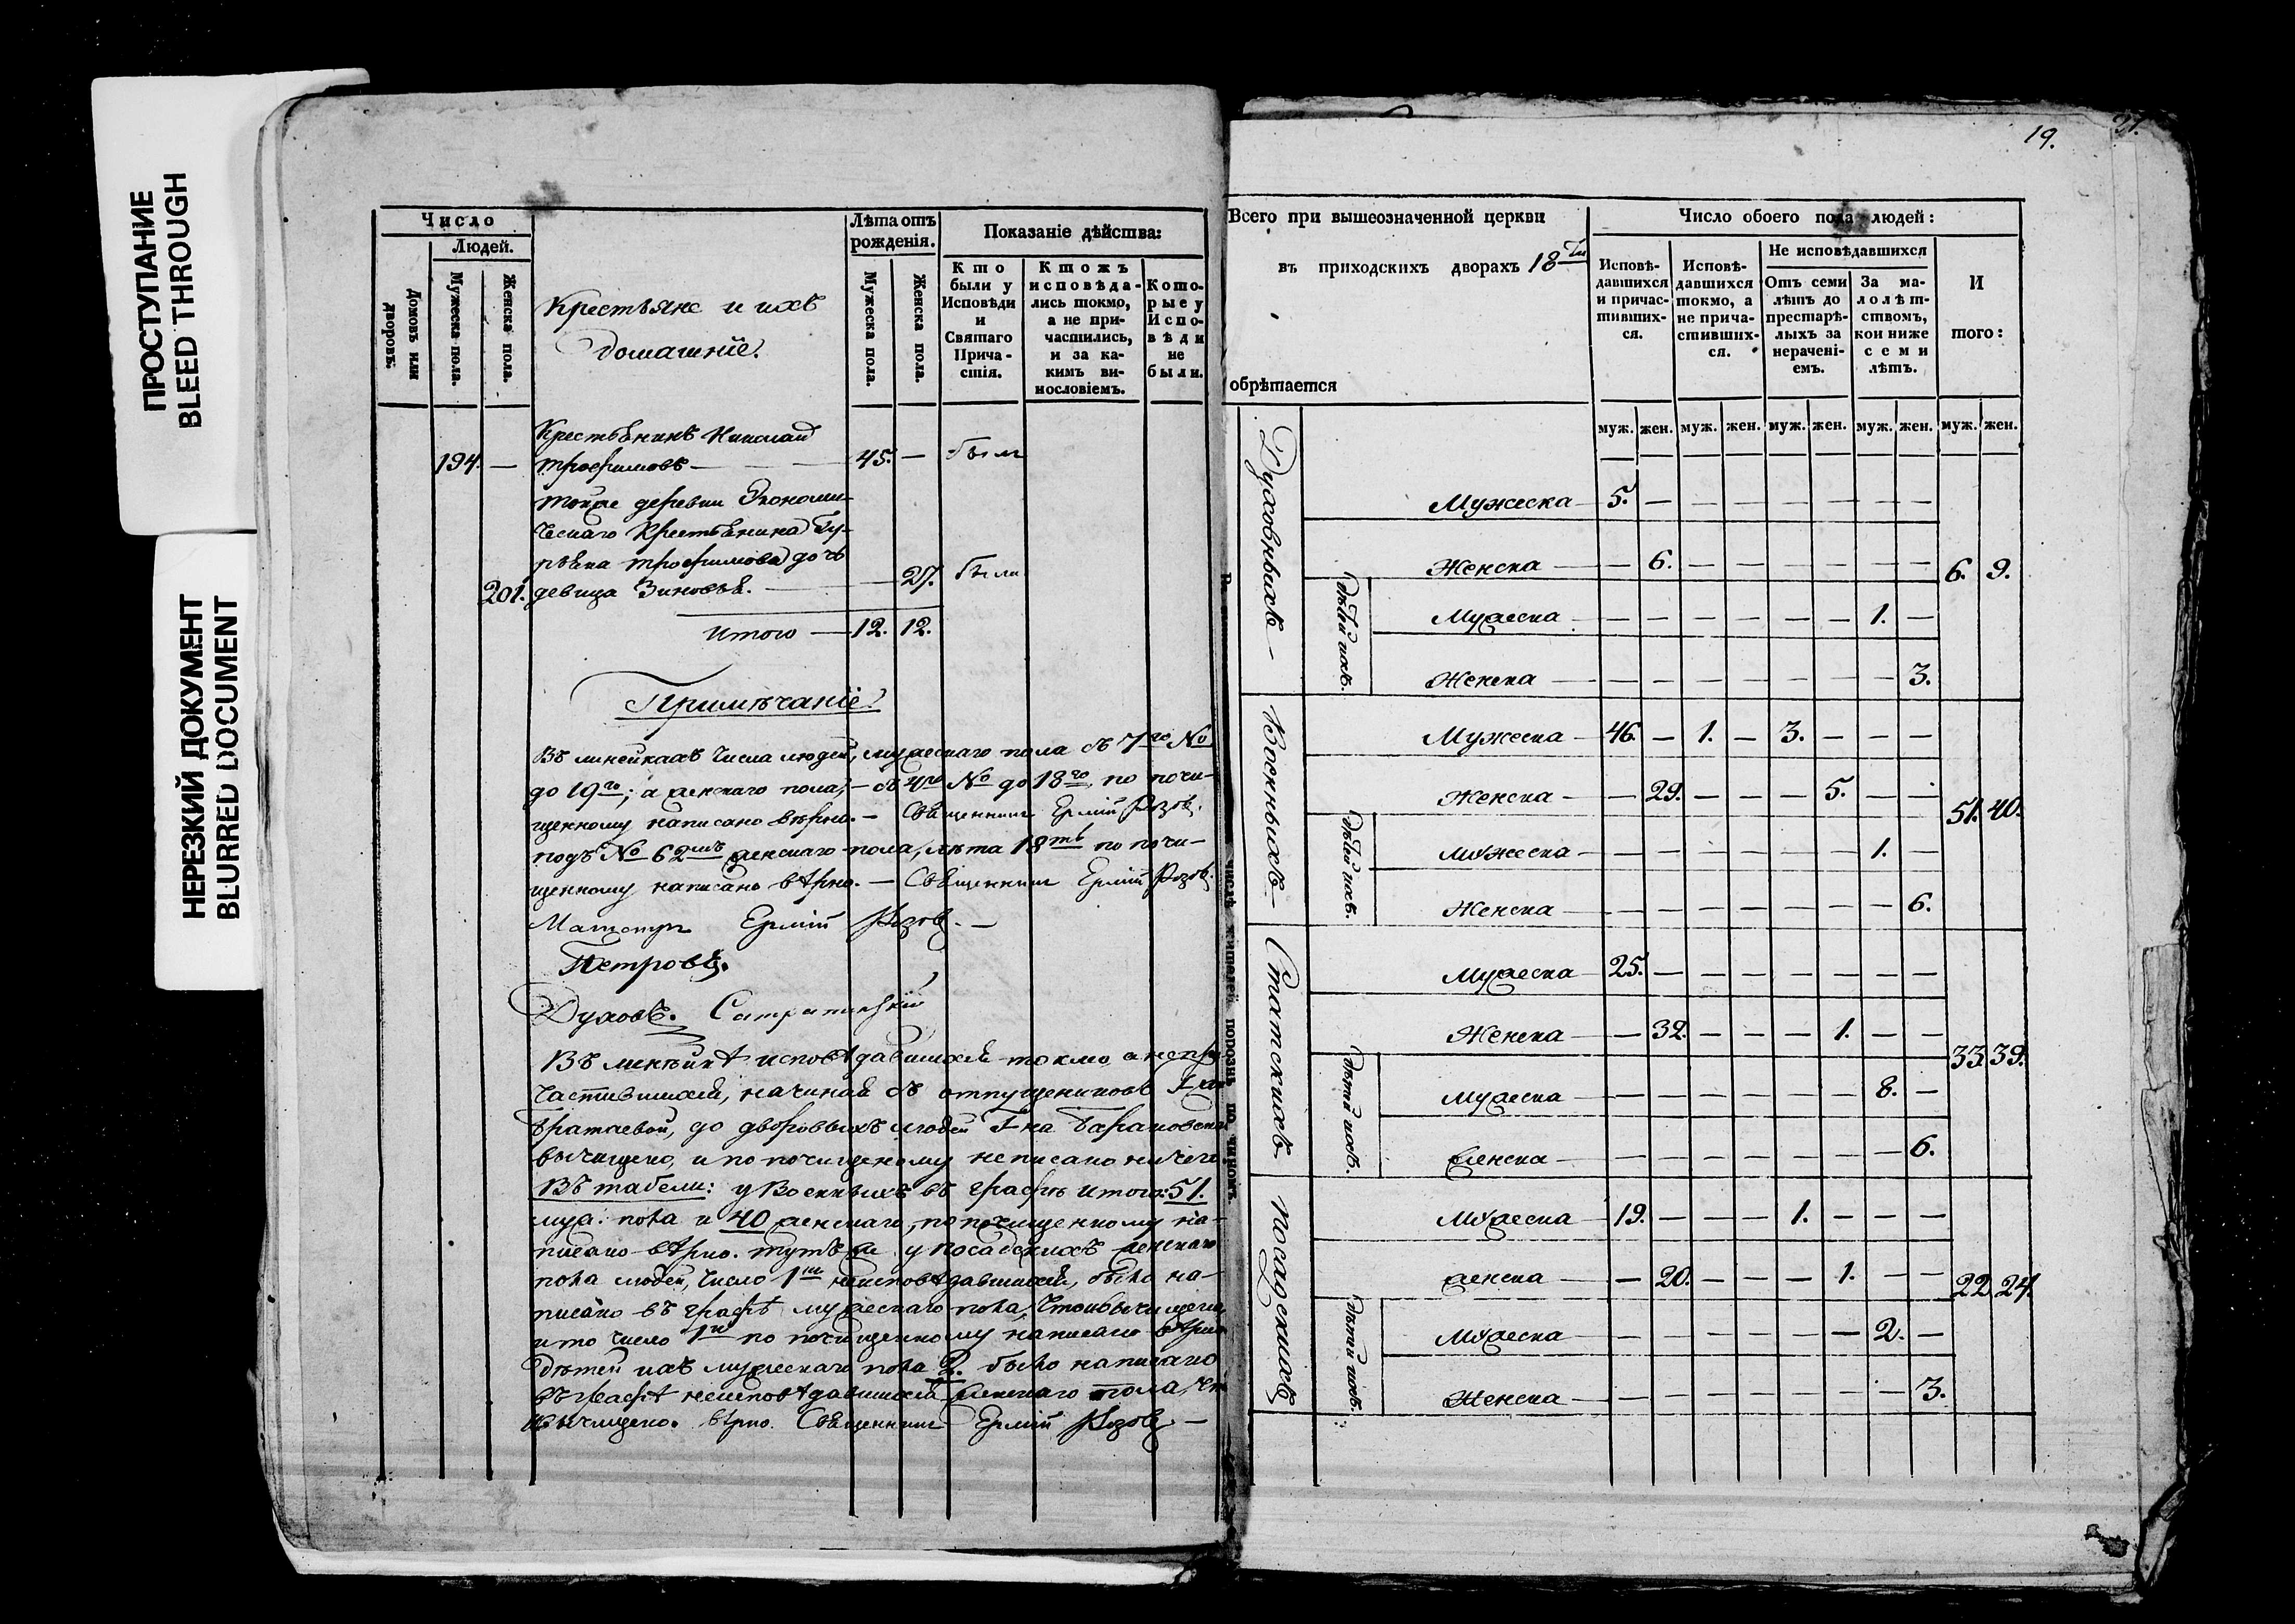 ПРОСТУПАНИЕ
BLEED THROUGH
НЕРЕЗКИЙ ДОКУМЕНТ
BLURRED DOCUMENT
Число
Людей.
Домовъ или дворовъ.
Мужеска пола.
Женска пола.
Крестьяне и ихъ
домашніе.
Лѣта отъ
рожденія.
Мужеска пола.
Женска пола.
Показаніе дѣйства:
Кто
были у
Исповѣди
и
Святаго
Прича-
стія.
Ктожъ
исповѣда-
лись токмо,
а не при-
частились,
и за ка-
кимъ ви-
нословіемъ.
Кото-
рые у
Испо-
вѣди
не
были.
Крестьянинъ Николай
194. — Трофимовъ — 45. — былъ
тойже деревни Экономи-
ческаго Крестьянина Гу-
рьяна Трофимова дочь
201. девица Зиновья. — 27. были
Итого — 12. 12.
Примѣчаніе
Въ линейкахъ числа людей, мужескаго пола съ 7го №
до 19го; а женскаго пола, — съ 4го № до 18го, по почи-
щенному написано вѣрно. — Священникъ Ермій Розов.
подъ № 62мъ женскаго пола, лѣта 18ть по почи-
щенному написано вѣрно. — Священникъ Ермій Розов.
Магистръ Ермій Розов. —
Петровъ.
Духовъ.
Въ линѣйкѣ исповѣдавшихся токмо а непри
частившихся, начиная съ отпущениковъ
Братаевой, до дворовыхъ людей Г на Барановска
вычищено, и по почищеному неписано ничего
Въ табели: у Военныхъ въ графѣ итого: 51.
муж: пола и 40 женскаго, по почищенному на-
писано вѣрно. тутъ же у посадскихъ женскаго
пола людей, число 1 неисповѣдавшихся, было на-
писано въ графѣ мужескаго пола, что и вычищено,
и то число 1 по почищенному написано вѣрно
дѣтей ихъ мужескаго пола 2. было написано
въ графѣ неисповѣдавшихся женскаго пола, что
и вычищено. вѣрно. Священникъ Ермій Розов —
19.
Всего при вышеозначенной церкви
въ приходскихъ дворахъ 18ти
обрѣтается
Число обоего пола людей:
Исповѣ-
давшихся
и причас-
тивших-
ся.
Исповѣ-
давшихся
токмо, а
не прича-
стивших-
ся.
Не исповѣдавшихся
Отъ семи
лѣтъ до
престарѣ-
лыхъ за
нерачені-
емъ.
За ма-
лолѣт-
ствомъ,
кои ниже
семи
лѣтъ.
И
того:
муж. жен. муж. жен. муж. жен. муж. жен. муж. жен.
Духовныхъ —
Мужеска — 5. — — — — — — —
Женска — — 6. — — — — — — 6. 9.
дѣтей ихъ.
Мужеска — — — — — — — 1. —
Женска — — — — — — — — 3.
Военныхъ —
Мужеска — 46. — 1. — 3. — — —
Женска — — 29. — — — 5. — — 51. 40.
дѣтей ихъ.
Мужеска — — — — — — — 1. —
Женска — — — — — — — — 6.
Статскихъ
Мужеска — 25. — — — — — — —
Женска — — 32. — — — 1. — — 33. 39.
дѣтей ихъ.
Мужеска — — — — — — — 8. —
Женска — — — — — — — — 6.
посадскихъ
Мужеска — 19. — — — 1. — — —
женска — — 20. — — — 1. — — 22. 24.
дѣтей ихъ.
Мужеска — — — — — — — 2. —
Женска — — — — — — — — 3.
числѣ жителей порознь по чиномъ.